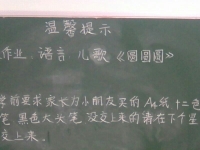 温馨提示
作业、语言 儿歌《圆圆圆》
学前要求家长为小朋友买的A4纸 十二色
笔 黑色大头笔 没交上来的请在下个星
交上来。